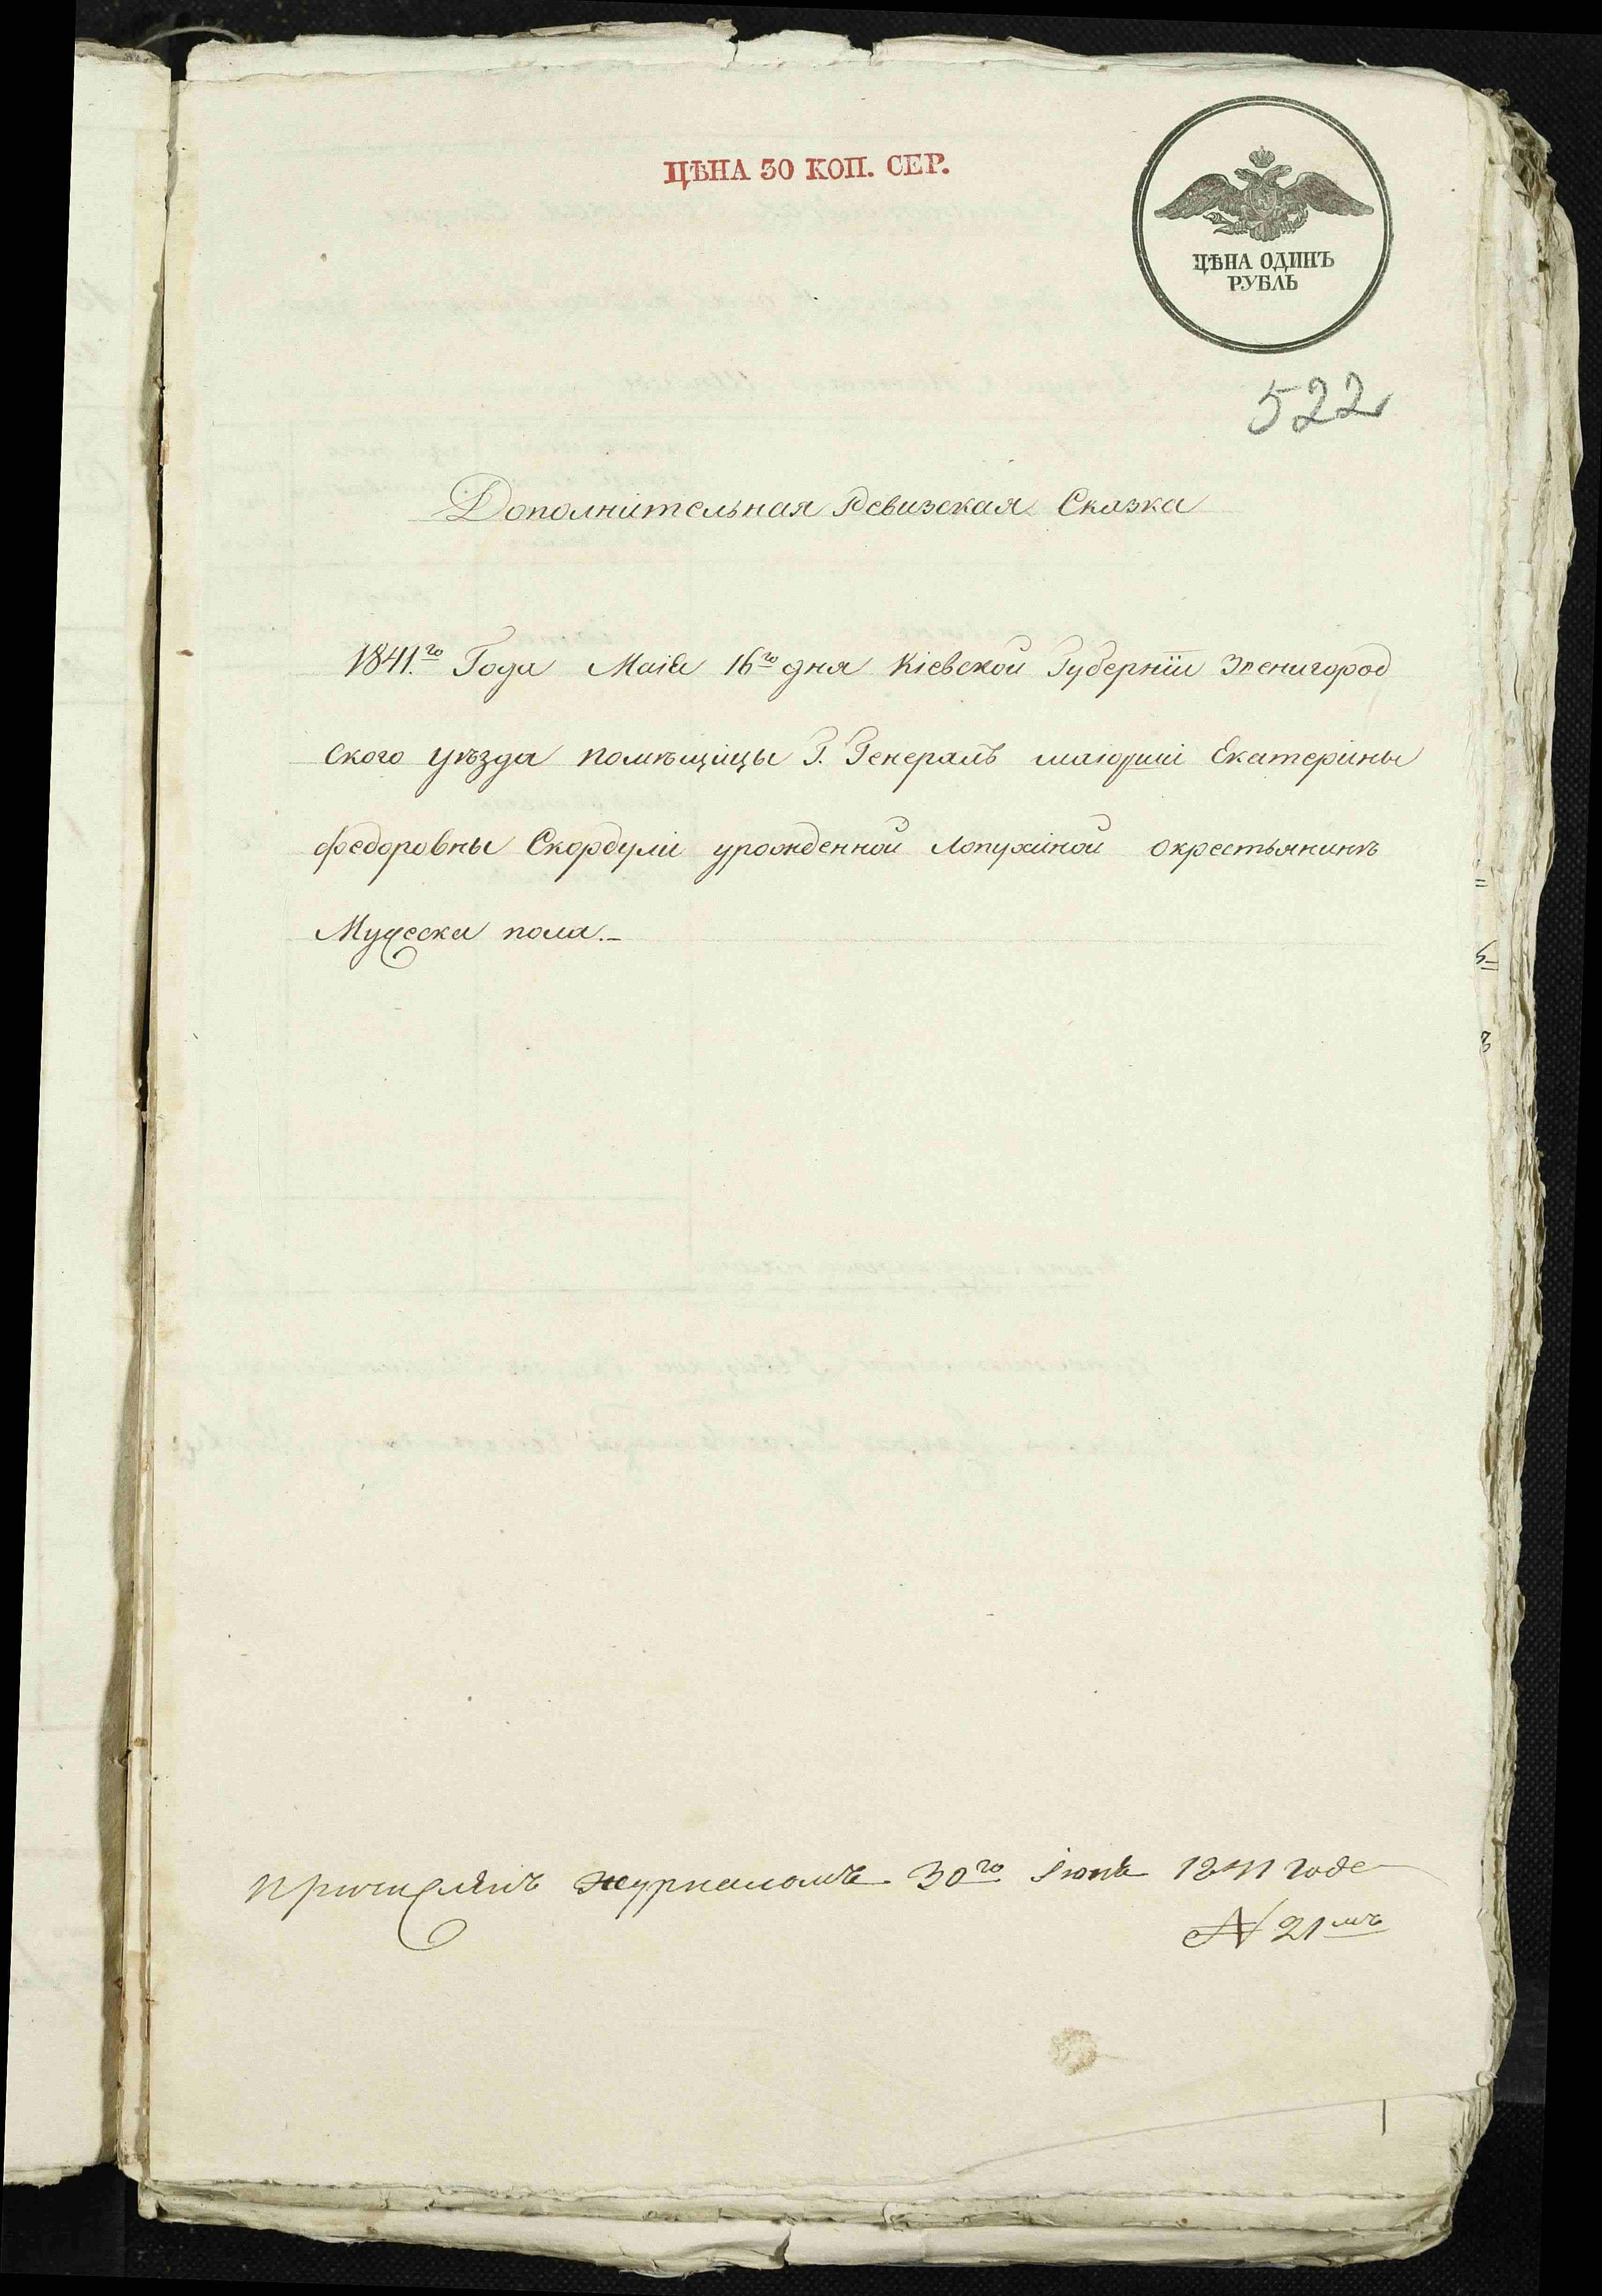 ЦѢНА 30 КОП. СЕР.
ЦѢНА ОДИНЪ
РУБЛЬ
522
Дополнительная Ревизская Сказка
1841.го Года Маія 16го дня Кіевской Губерніи Звенигород
ского уѣзда помѣщицы Г. Генералъ маіорши Екатерины
Федоровны Скордули урожденной Лопухиной окрестьянинѣ
Мужеска пола.-
Причисленъ журналомъ 30го Іюня 1841 года
№ 21мъ